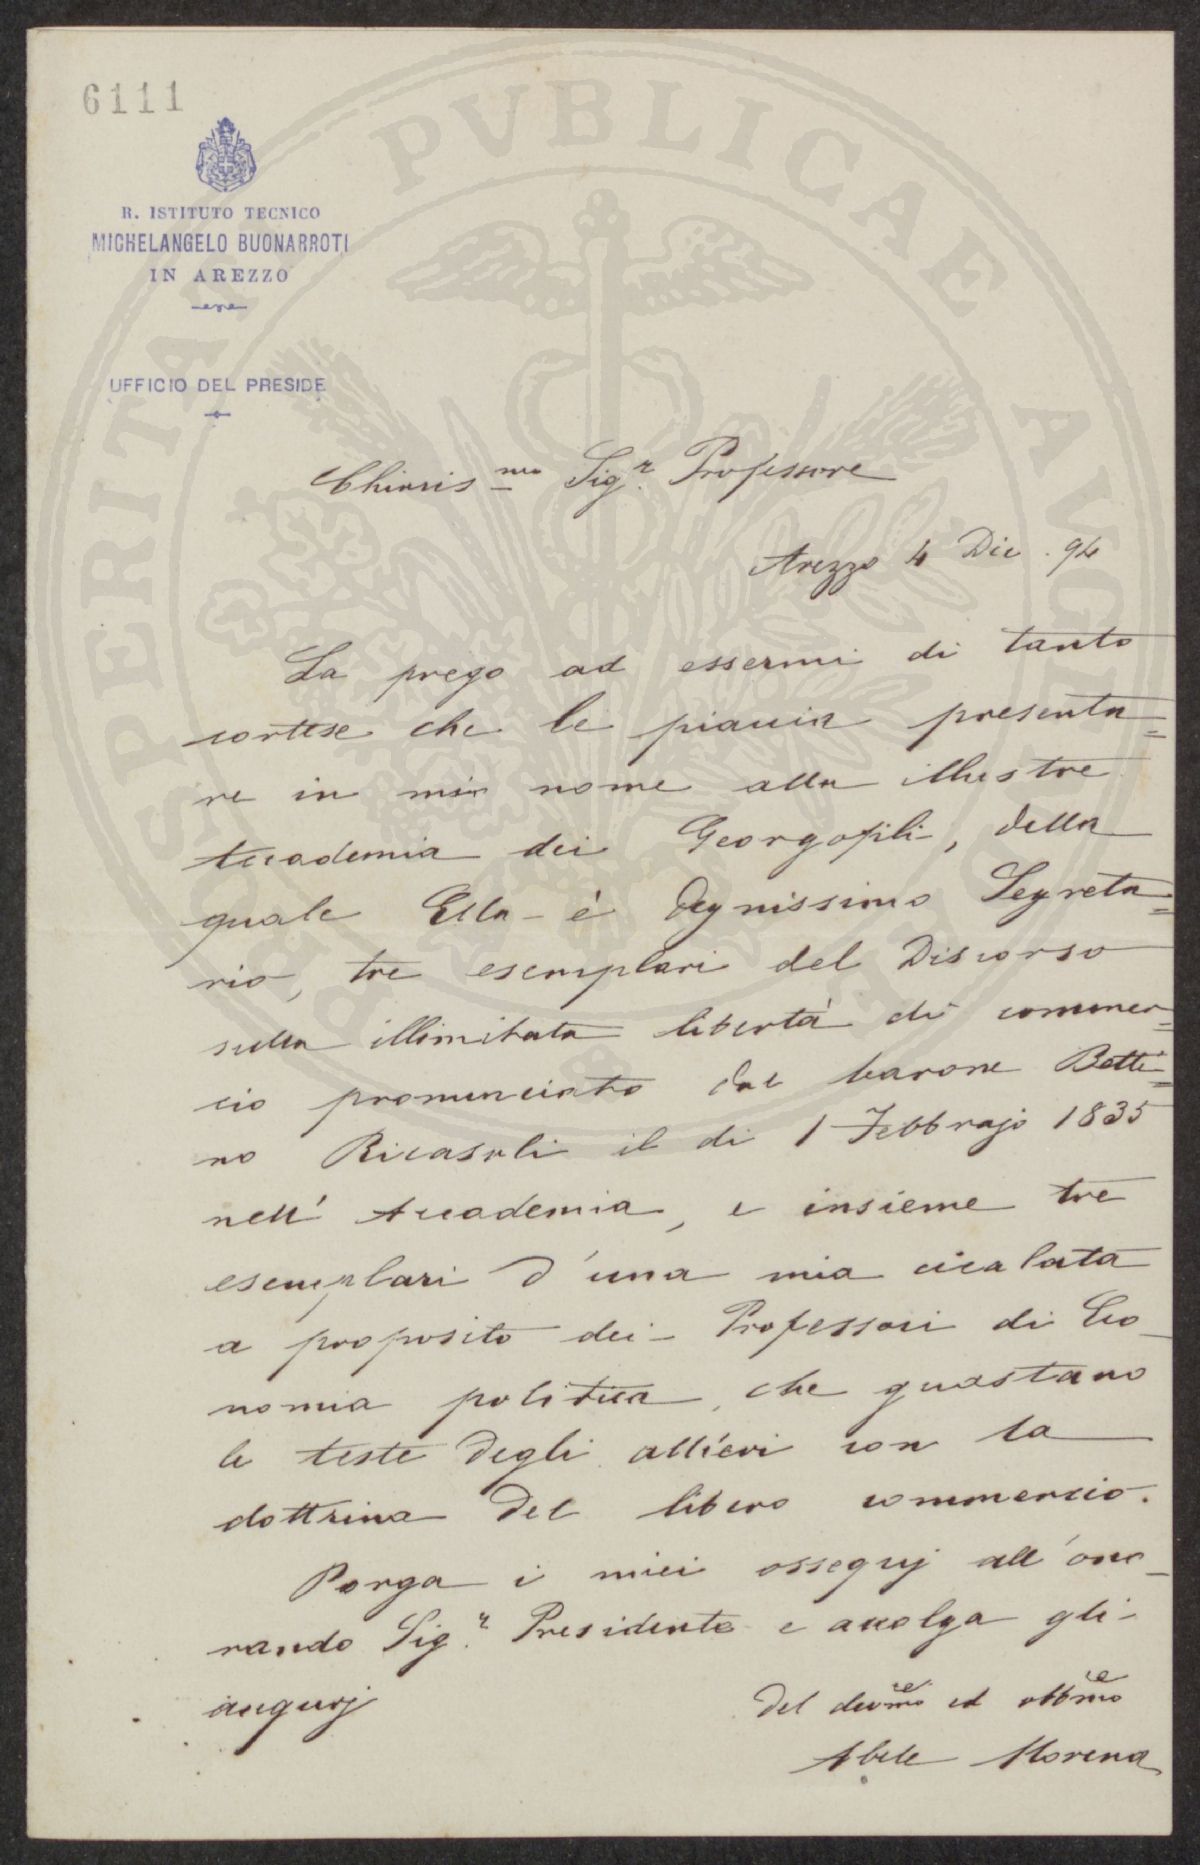 6111
R. ISTITUTO TECNICO
MICHELANGELO BUONARROTI
IN AREZZO
UFFICIO DEL PRESIDE
PROSPERITATI PVBLICAE AVGENDAE
Chiaris.mo Sig.r Professore
Arezzo 4 Dic. 94
La prego ad essermi di tanto
cortese che le piaccia presenta=
re in mio nome alla illustre
Accademia dei Georgofili, della
quale Ella è degnissimo Segreta=
rio, tre esemplari del Discorso
sulla illimitata libertà di commer=
cio pronunciato dal barone Betti=
no Ricasoli il di 1 Febbrajo 1835
nell'Accademia, e insieme tre
esemplari d'una mia cicalata
a proposito dei Professori di Eco_
nomia politica, che guastano
le teste degli allievi con la
dottrina del libero commercio.
Porga i miei ossequj all'ono_
rando Sig.r Presidente e accolga gli
augurj
Del devmo ed obbmo
Abele Morena